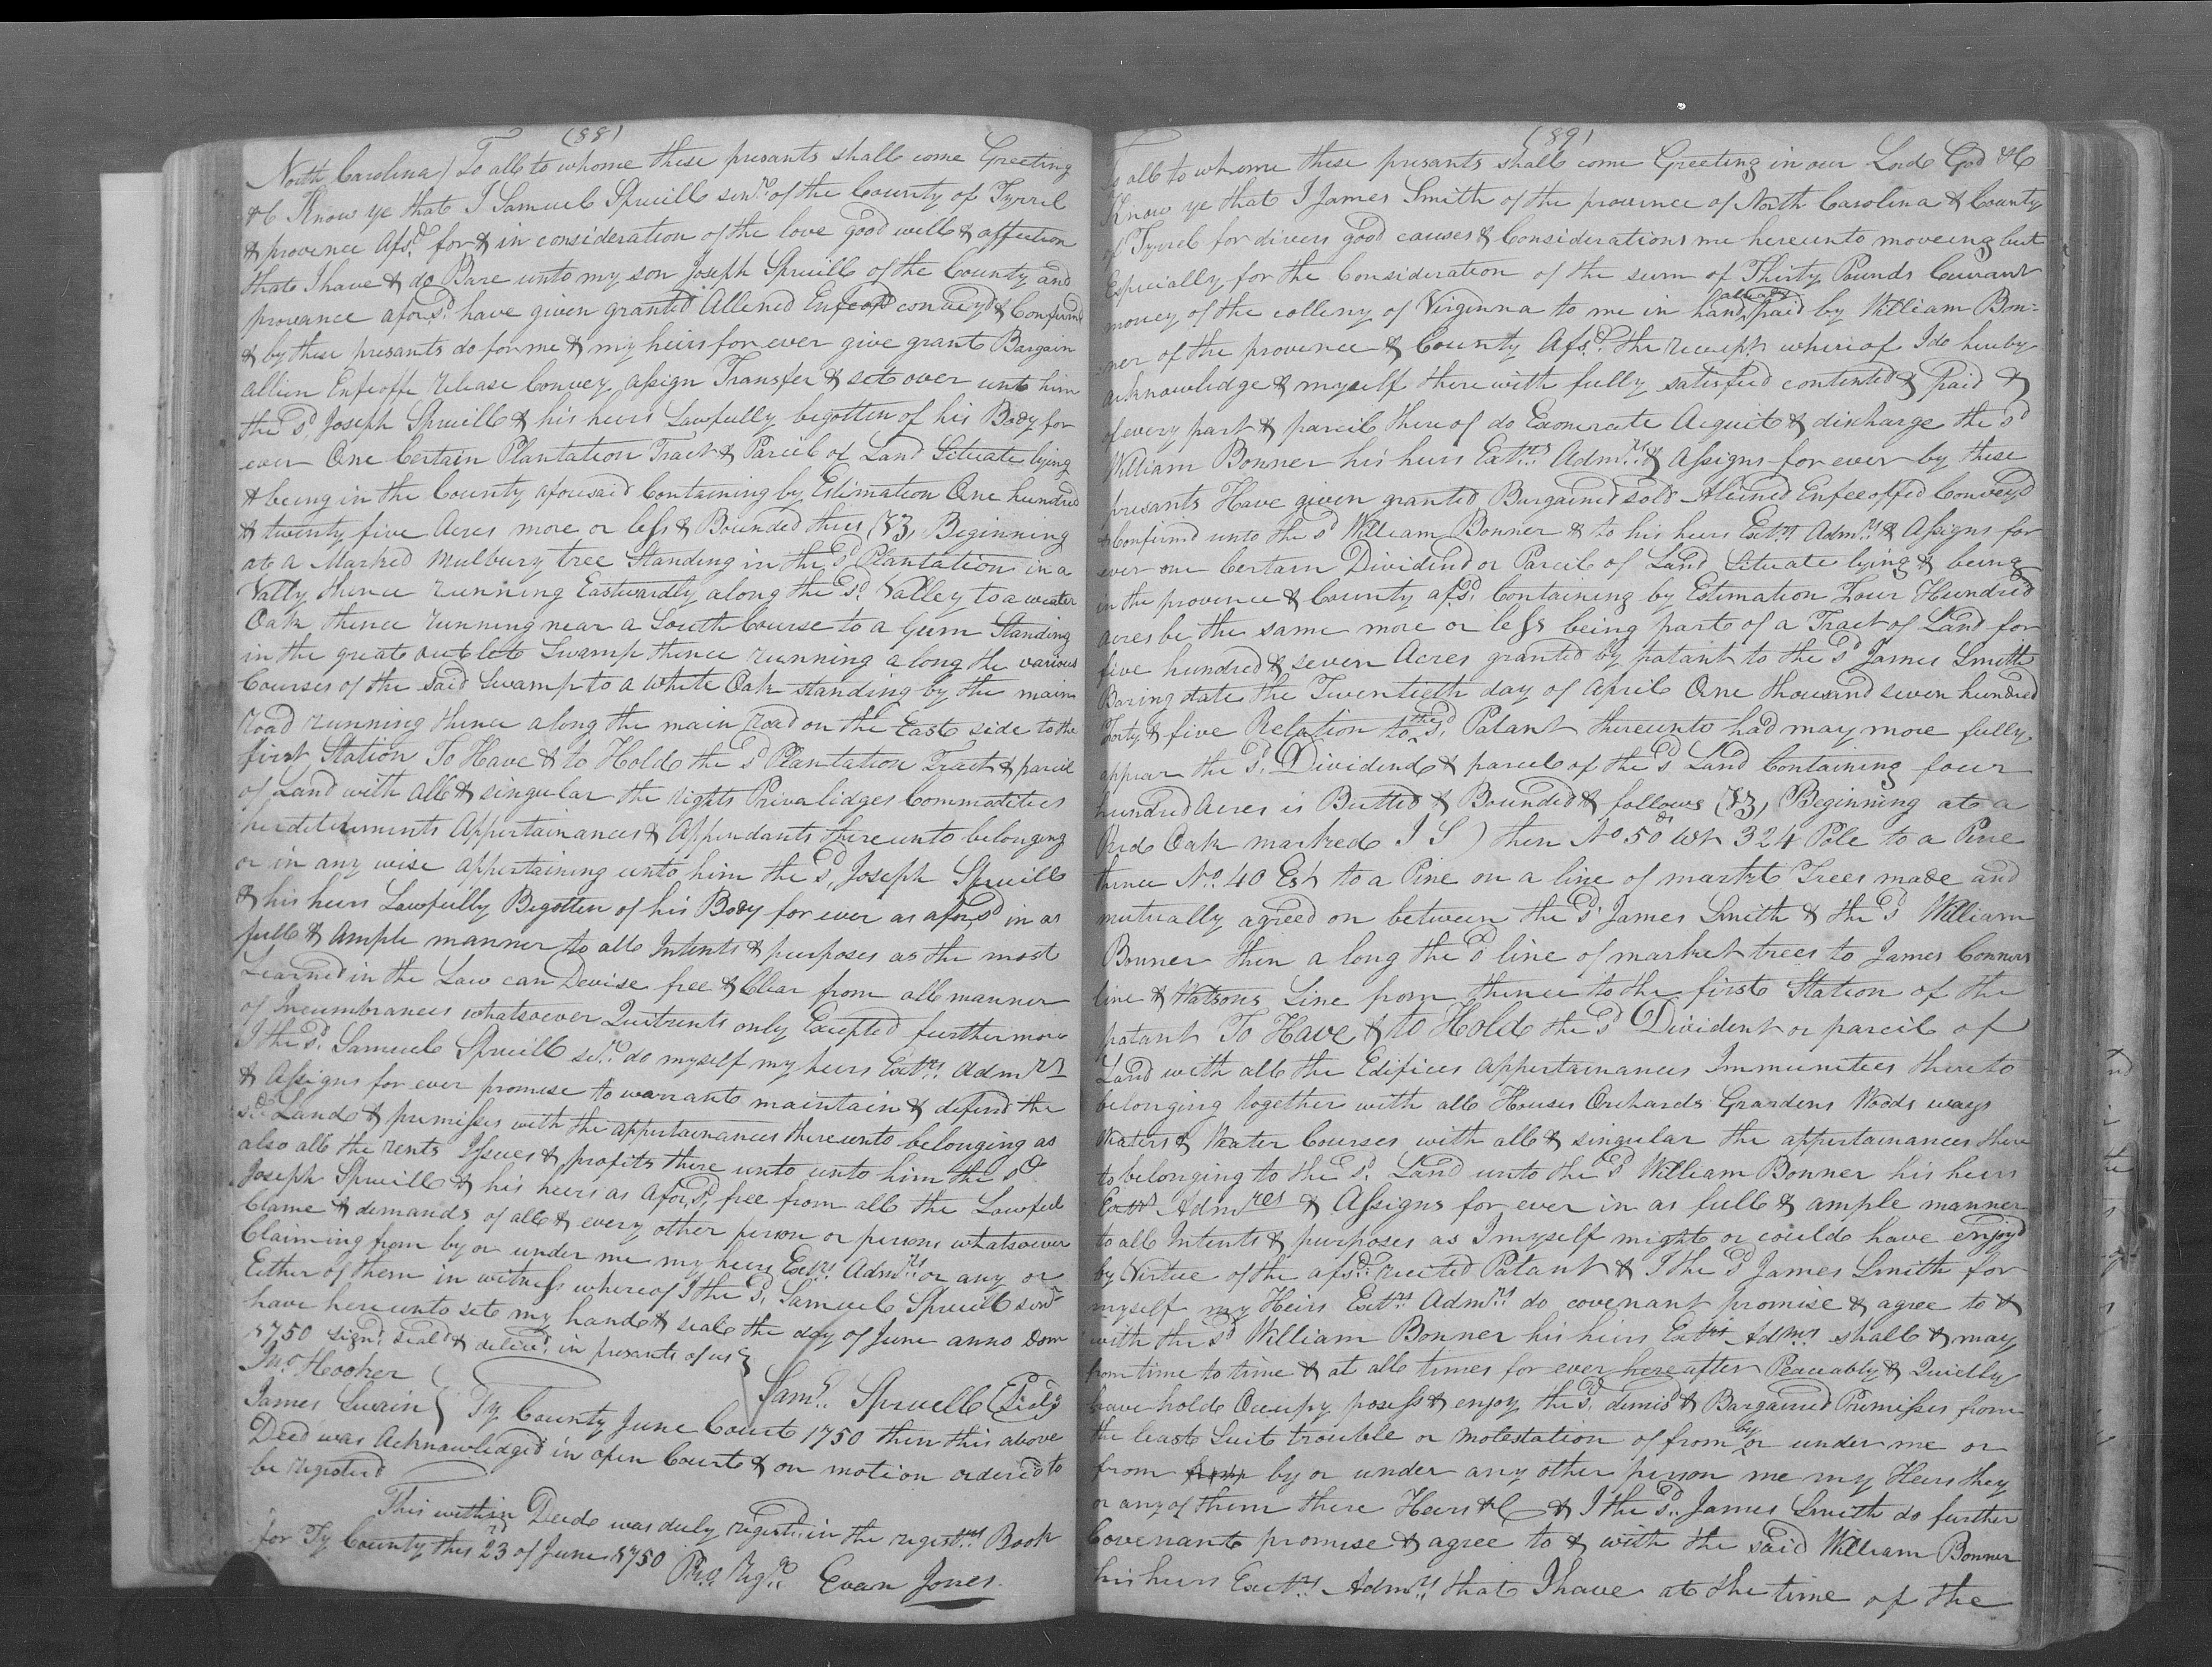 (88)
North Carolina) To all to whome these presants shall come Greeting
&c Know ye that I Samuel Spruill senr. of the County of Tyrrel
& provence Afsd. for & in consideration of the love good will & affection
that I have & do Bare unto my son Joseph Spruill of the County and
provance aforsd. have given granted Allened Enfeofd conveyd & Confirmd
& by these presants do for me & my heirs for ever give grant Bargain
allien Enfeoffe release Convey assign Transfer & set over unto him
the sd. Joseph Spruill & his heirs Lawfully begotten of his Body for
ever One Certain Plantation Tract & Parcel of Land Situate lying
& being in the County aforesaid Containing by Estimation One hundred
& twenty five Acres more or less & Bounded thus Beginning
at a Marked mulbury tree Standing in the sd. Plantation in a
Vally thence running Eastwardly along the sd. Valley to a water
Oak thence running near a South Course to a Gum Standing
in the great outlet Swamp thence running along the various
Courses of the said Swamp to a white Oak standing by the main
road running thence along the main road on the East side to the
first Station To Have & to Hold the sd. Plantation Tract & parcil
of Land with all & singular the rights Privalidges Commodities
herditements Appertainances & Appendants thereunto belonging
or in any wise appertaining unto him the sd. Joseph Spruill
& his heirs Lawfully Begotten of his Body for ever as aforsd in as
full & ample manner to all Intents & purposes as the most
Learned in the Law can Devise free & Clear from all manner
of Incumbrances whatsoever Quitrents only Excepted further more
I the sd. Samuel Spruill sr. do myself my heirs Exetrs. Admrs
& Assigns for ever promise to warrant maintain & defend the
sd. Land & premisses with the appertainances thereunto belonging as
also all the rents Issues & profits there unto unto him the sd
Joseph Spruill & his heirs as aforsd. free from all the Lawful
Clame & demands of all & every other person or persons whatsoever
Claiming from by or under me my heirs Exetrs. Admrs or any or
Either of them in witness whereof I the sd. Samuel Spruill senr
have hereunto sete my hand & seale the day of June anno Dom
1750 signd. seald & deliverd. in presants of us
Jno Hooker
James Swain Saml. Spruill (Seal)
Ty County June Court 1750 then this above
Deed was Acknawledged in open Court & on motion ordered to
be registred
This within Deede was duly registd. in the registrs Book
for Ty County this 23d of June 1750
Evan Jones
(89)
To all to whome these presants shall come Greeting in our Lord God &c
Know ye that I James Smith of the province of North Carolina & County
of Tyrrel for divers good causes & Considerations me hereunto moveing but
Especially for the Consideration of the sum of Thirty Pounds Currant
money of the colleny of Virginna to me in hand already paid by William Bon-
-ner of the provence & County Afsd. the receipt whereof I do hereby
acknowlidge & myself there with fully satisfied contented & paid &
of every part & parcil there of do Exonerate Acquit & discharge the sd
William Bonner his heirs Exetrs Admrs & Assigns for ever by these
presants Have given granted Bargained sold Aleined Enfeeoffed Conveyd
& Confirmd unto the sd William Bonner & to his heirs Exetrs Admrs & Assigns for
ever one Certain Dividend or Parcel of Land Situate lying & being
in the provence & County afsd. Containing by Estimation Four Hundred
acres be the same more or less being part of a Tract of Land for
five hundred & seven Acres granted by patant to the sd James Smith
Baring date the Twentieth day of April One thousand seven hundred
Forty & five Relation to the sd. Patant thereunto had may more fully
appear the sd. Dividend & parcel of the sd Land Containing four
hundred Acres is Butted & Bounded & follows Beginning at a
Red Oak marked I S) then No 50 ds Wt 324 Pole to a Pine
thence No. 40 Est to a Pine on a line of markt Trees made and
mutually agreed on between the sd James Smith & the sd William
Bonner then a long the sd line of market trees to James Conners
line & Watsons Line from thence to the first Station of the
patant To Have & to Hold the sd Divident or parcil of
Land with all the Edifices appertainances Immunitees thereto
belonging together with all Houses Orchards Grardens Woods ways
Waters & Water Courses with all & singular the appertainances there
to belonging to the sd. Land unto the sd William Bonner his heirs
Exetrs Admres & Assigns for ever in as full & ample manner
to all Intents & purposes as I myself might or coulde have enjoyd
by Virtue of the afsd. recited Patant & I the sd James Smith for
myself my Heirs Exetrs Admrs do covenant promise & agree to &
with the sd William Bonner his heirs Exetrs Admrs shall & may
from time to time & at all times for ever here after Peaceably & Quietly
have holde Occupy posess & enjoy the sd. demisd & Bargained Premisses from
the least Suit trouble or molestation of from by or under me or
from by or under any other person me my Heirs they
or any of them there Heirs &c & I the sd. James Smith do further
Covenant promise & agree to & with the said William Bonner
his heirs Exetrs Admrs that I have at the time of the